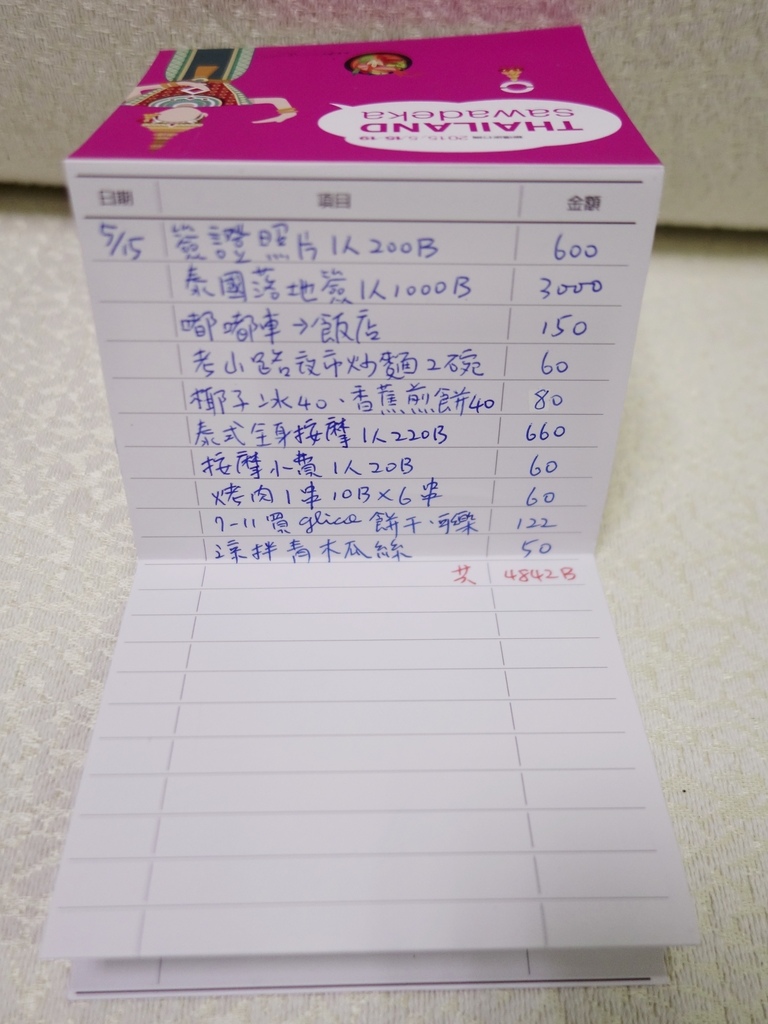 THAILAND
sawadeka
2015.5.15-19
日期 項目 金額
5/15 簽證照片1人200B 600
泰國落地簽1人1000B 3000
嘟嘟車→飯店 150
考山路夜市炒麵2碗 60
椰子冰40、香蕉煎餅40 80
泰式全身按摩1人220B 660
按摩小費1人20B 60
烤肉1串10B×6串 60
7-11買glico餅干、可樂 122
涼拌青木瓜絲 50
共 4842B